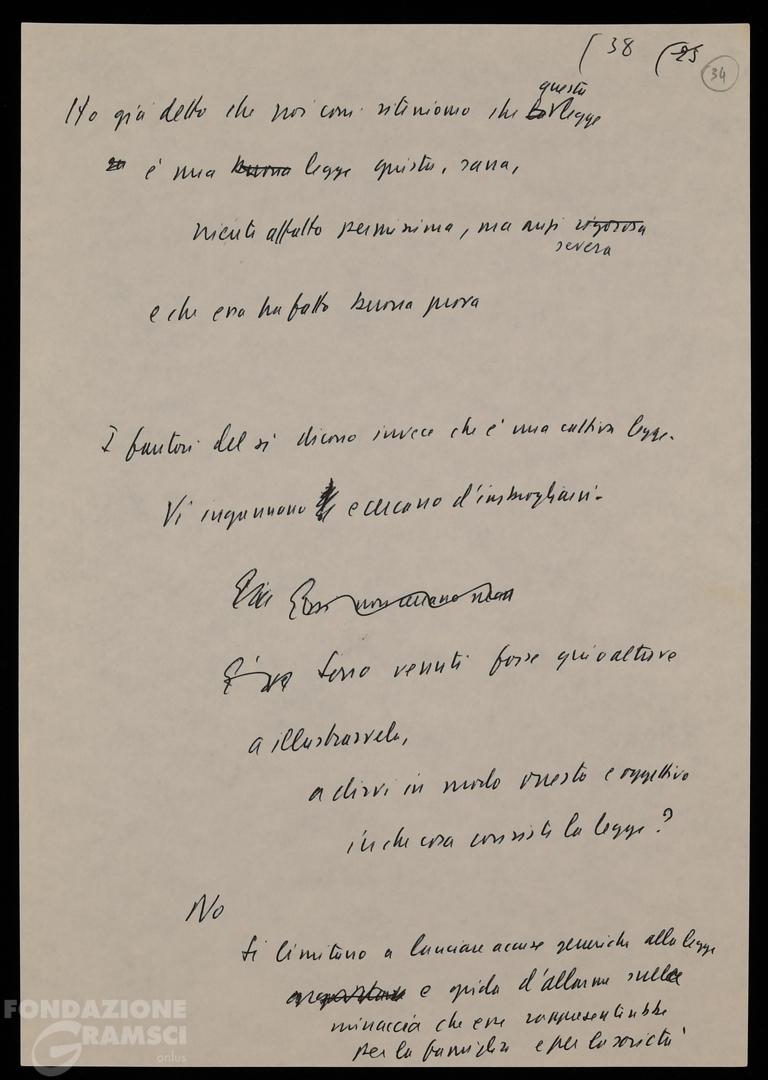 ( 38 ( 25 34
questa
Ho già detto che noi com. riteniamo che la legge
è una buona legge giusta, sana,
niente affatto permissiva, ma anzi rigorosa
severa
e che essa ha fatto buona prova
I fautori del sì dicono invece che è una cattiva legge.
Vi ingannano e cercano d'imbrogliarvi.
Essi non
Sono venuti forse qui o altrove
a illustrarvela,
a dirvi in modo onesto e oggettivo
in che cosa consiste la legge?
No
Si limitano a lanciare accuse generiche alla legge
e grida d'allarme sulla
minaccia che essa rappresenterebbe
per la famiglia e per la società
FONDAZIONE
GRAMSCI
onlus